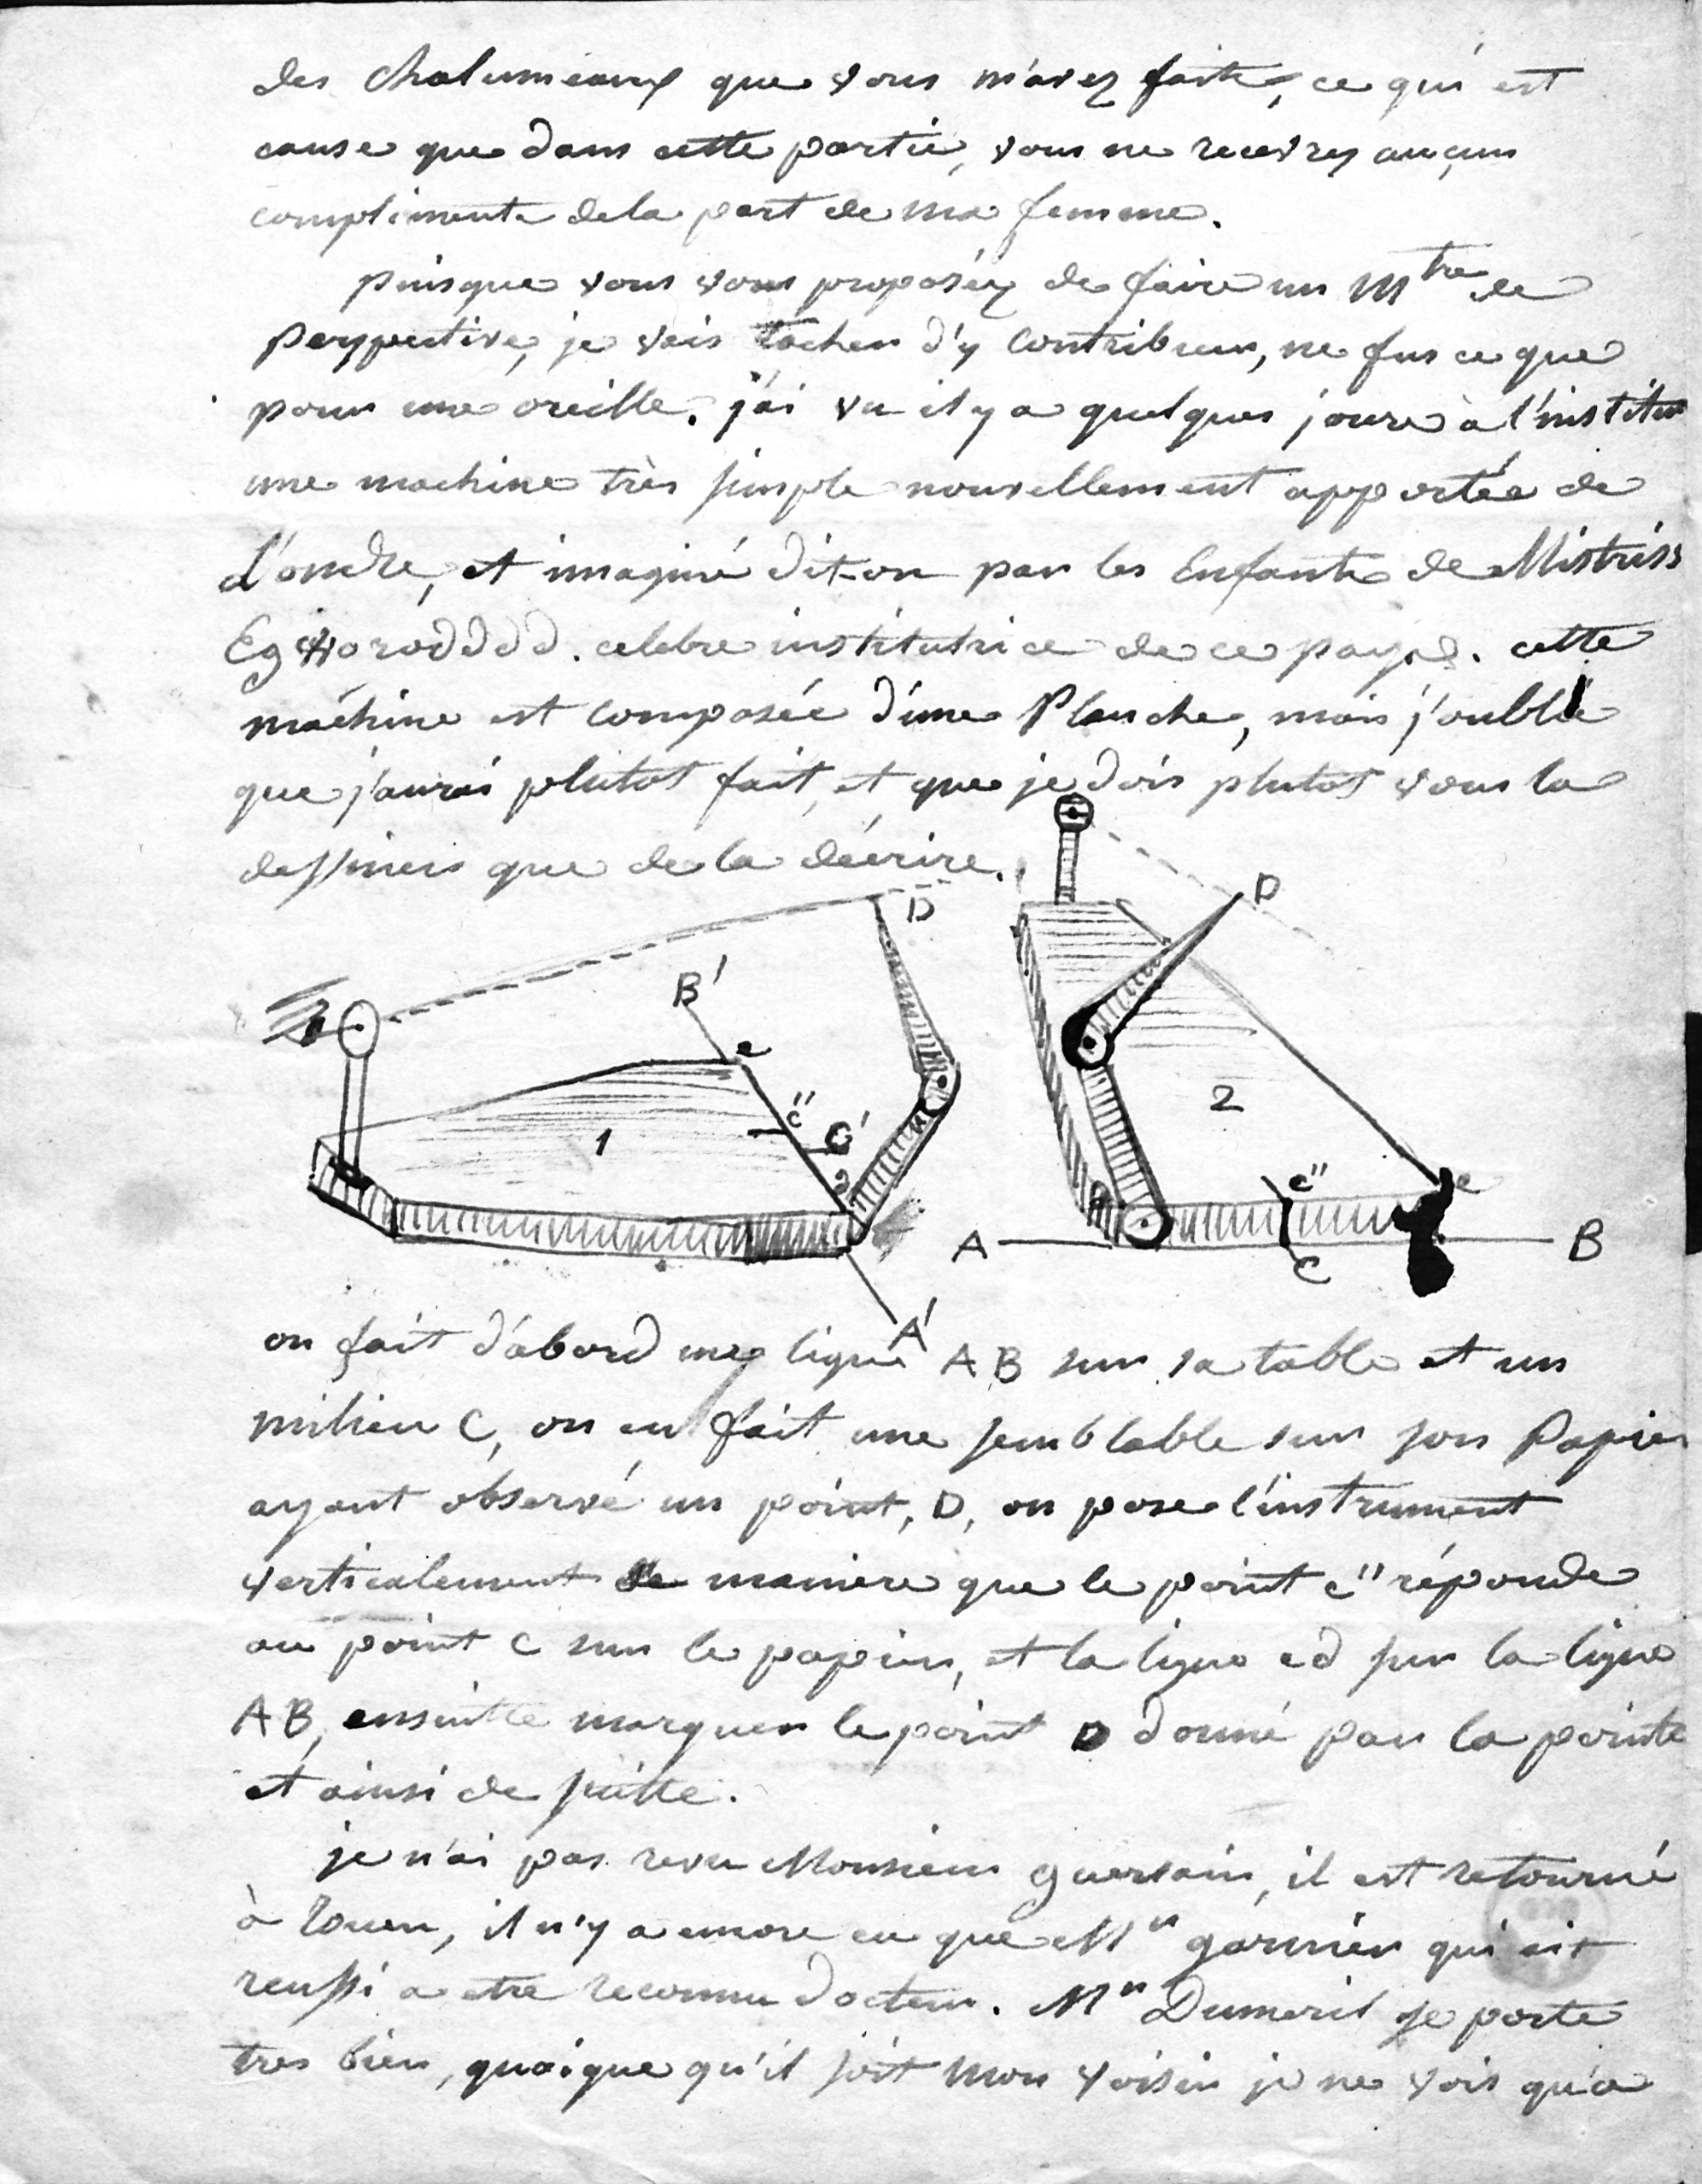 des chalumeaux que vous m'avez faite, ce qui est
cause que dans cette partie, vous ne recevrez aucuns
compliments de la part de ma femme.
puisque vous vous proposéz de faire un Mtre de
perspective, je vais tacher d'y contribuer, ne fus ce que
pour une oreille. j'ai vu il y a quelques jours à l'institu
une machine très simple nouvellement apportée de
Londre, et imaginé dit-on par les Enfants de Mistriss
celebre institutrice de ce pays. cette
machine est composée d'une Planche, mais j'oublie
que j'aurai plutot fait, et que je dois plutot vous la
dessiner que de la décrire.
D
D
B'
e
c"
C'
1
2
c"
e
d
A
B
C
A'
on fait d'abord une ligne AB sur sa table et un
milieu C, on en fait une semblable sur son Papier
ayant observé un point, D, on pose l'instrument
verticalement de maniere que le point c" réponde
au point c sur le papier, et la ligne ed sur la ligne
AB, ensuitte marquer le point D donné par la pointe
et ainsi de suitte.
je n'ai pas revu Monsieur guersain, il est retourné
à Rouen, il n'y a encore eu que Mr garnier qui ait
reussi a etre reconnu docteur. Mr Dumeril se porte
tres bien, quoique qu'il soit mon voisin je ne vois qu'a